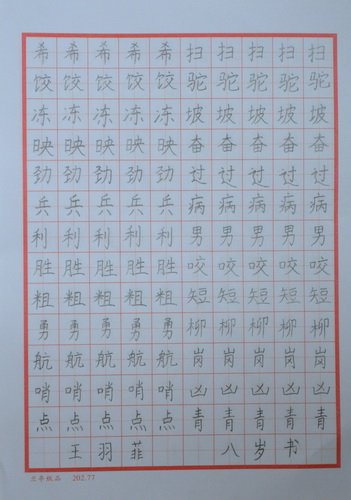 希希希希希扫扫扫扫扫
饺饺饺饺饺驼驼驼驼驼
冻冻冻冻冻坡坡坡坡坡
映映映映映奋奋奋奋奋
劲劲劲劲劲过过过过过
兵兵兵兵兵病病病病病
利利利利利男男男男男
胜胜胜胜胜咬咬咬咬咬
粗粗粗粗粗短短短短短
勇勇勇勇勇柳柳柳柳柳
航航航航航岗岗岗岗岗
哨哨哨哨哨凶凶凶凶凶
点点点点点青青青青青
王羽菲 八岁书
兰亭纸品 202.77